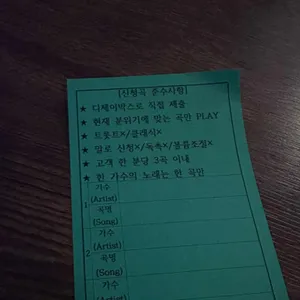 [신청곡 준수사항]
★ 디제이박스로 직접 제출
★ 현재 분위기에 맞는 곡만 PLAY
★ 트롯트×/클래식×
★ 말로 신청×/독촉×/볼륨조절×
★ 고객 한 분당 3곡 이내
★ 한 가수의 노래는 한 곡만
1 가수
(Artist)
곡명
(Song)
2 가수
(Artist)
곡명
(Song)
가수
(Artist)